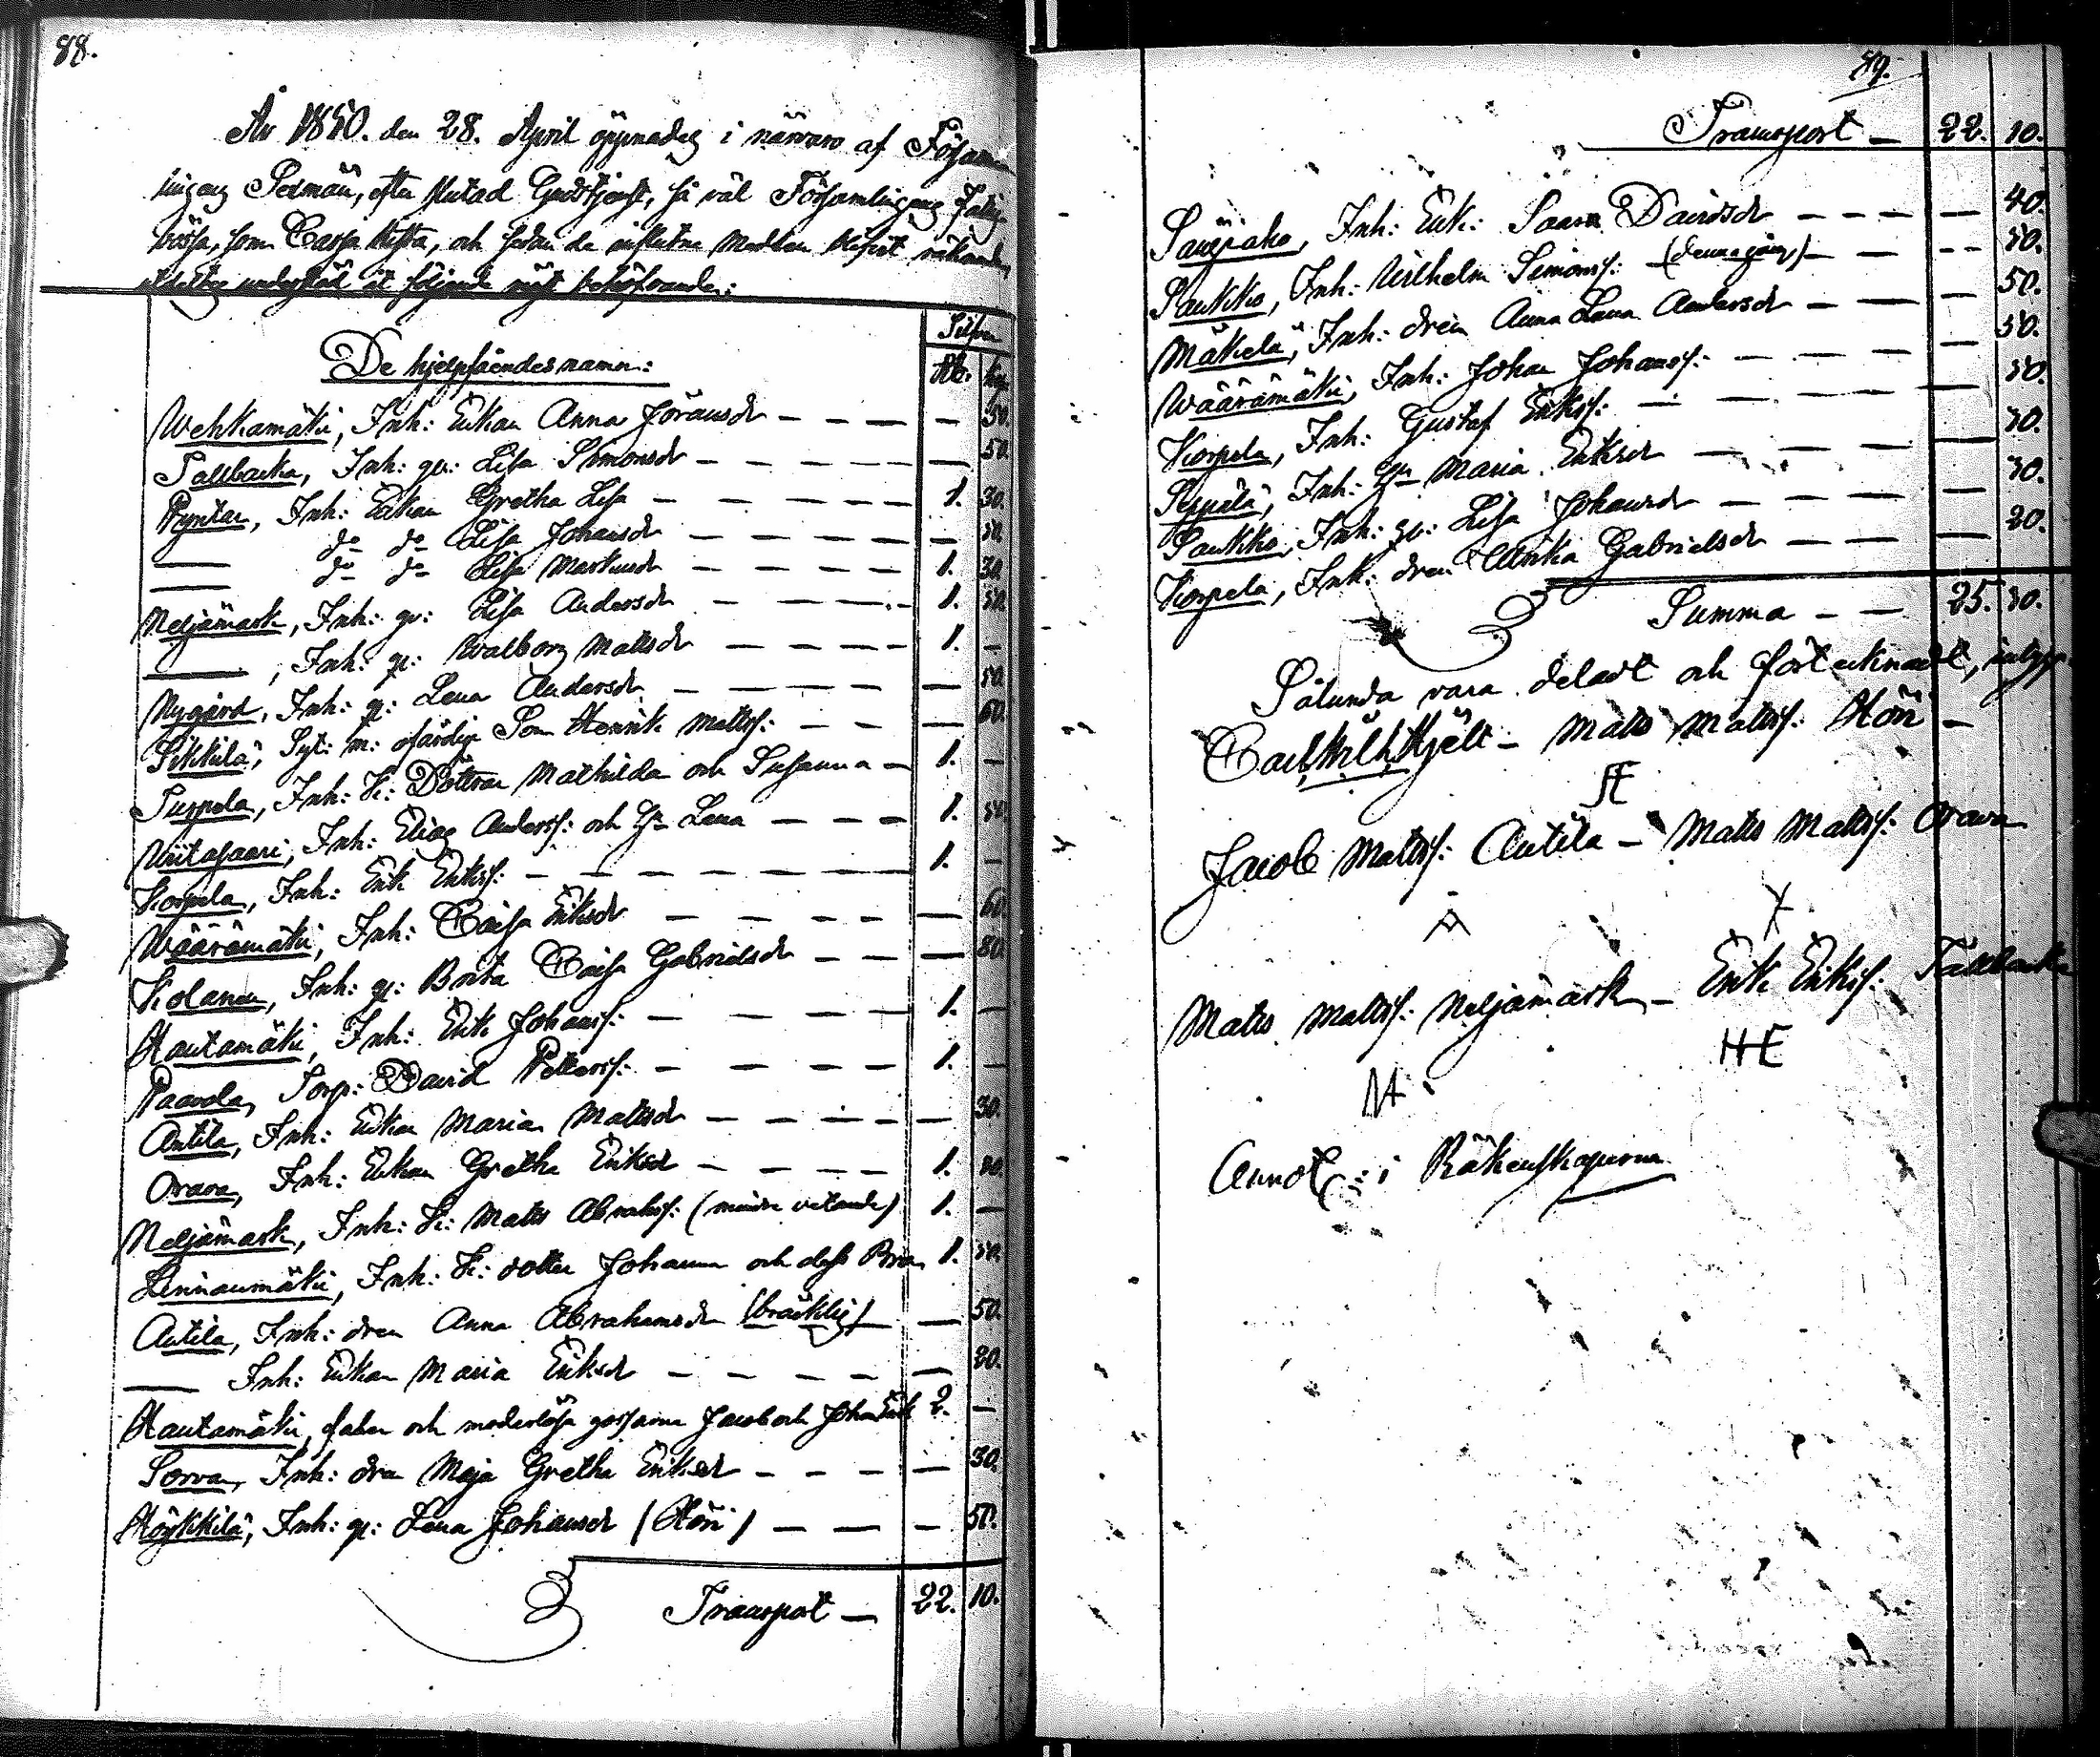 88.
År 1850. den 28. April öppnades i närvaro af Försam
lingens Sexmän, efter slutad Gudstjenst, så väl Församlingens Fattig
bössa, som Cassa Kista, och sedan de influtne medlen blifvit räknade,
utdeltes understöd åt följande mäst behöfvande:
Silfver
De hjelpsåendes namn: Rb. kop.
Wehkamäki, Inh: Enkan Anna Jöransdr - - - — 50.
Sallbacka, Inh: qv: Lisa Simonsdr - - - — 50.
Pyntar, Inh: Enkan Gretha Lisa - - - 1. 30.
— do do Lisa Johansdr - - - — 50.
— do do Lisa Markusdr - - - 1. 30.
Neljämark, Inh: qv: Lisa Andersdr - - - 1. 50.
—, Inh: qv: Walborg Mattsdr - - - 1. —
Nygård, Inh: qv: Lena Andersdr - - - — 50.
Sikkilä, Syt: m: ofärdige Son Henrik Mattss: - - — 60.
Surpola, Inh: K: Döttrar Mathilda och Susanna — 1. —
Wiitasaari, Inh: Elias Anderss: och Hu Lena - - - 1. 50.
Korpela, Inh: Erik Erikss: - - - 1. —
Wäärämäki, Inh: Caisa Eriksdr - - - — 60.
Kolanen, Inh: qv: Brita Caisa Gabrielsdr - - — 80.
Hautamäki, Inh: Erik Johanss: - - - 1. —
Paavola, Torp: David Petterss: - - - 1. —
Antila, Inh: Enkan Maria Mattsdr - - - — 30.
Orava, Inh: Enkan Gretha Eriksdr - - - 1. 20.
Neljämark, Inh: K: Matts Abrahss: (mindre vetande) 1. —
Linnanmäki, Inh: K: dotter Johanna och dess Bror 1. 50.
Antila, Inh: dren Anna Abrahamsdr (bräcklig) — 50.
— Inh: Enkan Maria Eriksdr - - - — 20.
Hautamäki, fader och moderlösa gossarne Jacob och Johan Erik 2. —
Sorva, Inh: dra Maja Gretha Eriksdr - - - — 30.
Höykkilä, Inh: qv: Lena Johansdr (Höri) — — — 50.
Transport — 22. 10.
89.
Transport — 22. 10.
Inh: Enk: Saara Davidsdr - - - — 40.
Saukko, Inh: Wilhelm Simonss: (denna gång) — - - 50.
Mäkelä, Inh: dren Anna Lena Andersdr - — — 50.
Wäärämäki, Inh: Johan Johanss: - - - — 50.
Korpela, Inh: Gustaf Erikss: - - - — 50.
Seppälä, Inh: Hu Maria Eriksdr - - - — 30.
Saukko, Inh: qv: Lisa Johansdr - - - — 30.
Korpela, Inh: dren Anika Gabrielsdr — — — 20.
Summa - — 25. 30.
Sålunda vara deladt och förteknadt, intyga
Carl Wilh. Hjelt — Matts Mattss: Höri —
Jacob Mattss: Antila — Matts Mattss: Orava
Matts Mattss: Neljämark — Erik Erikss: Tallbacka
HE
Annot: i Räkenskaperna